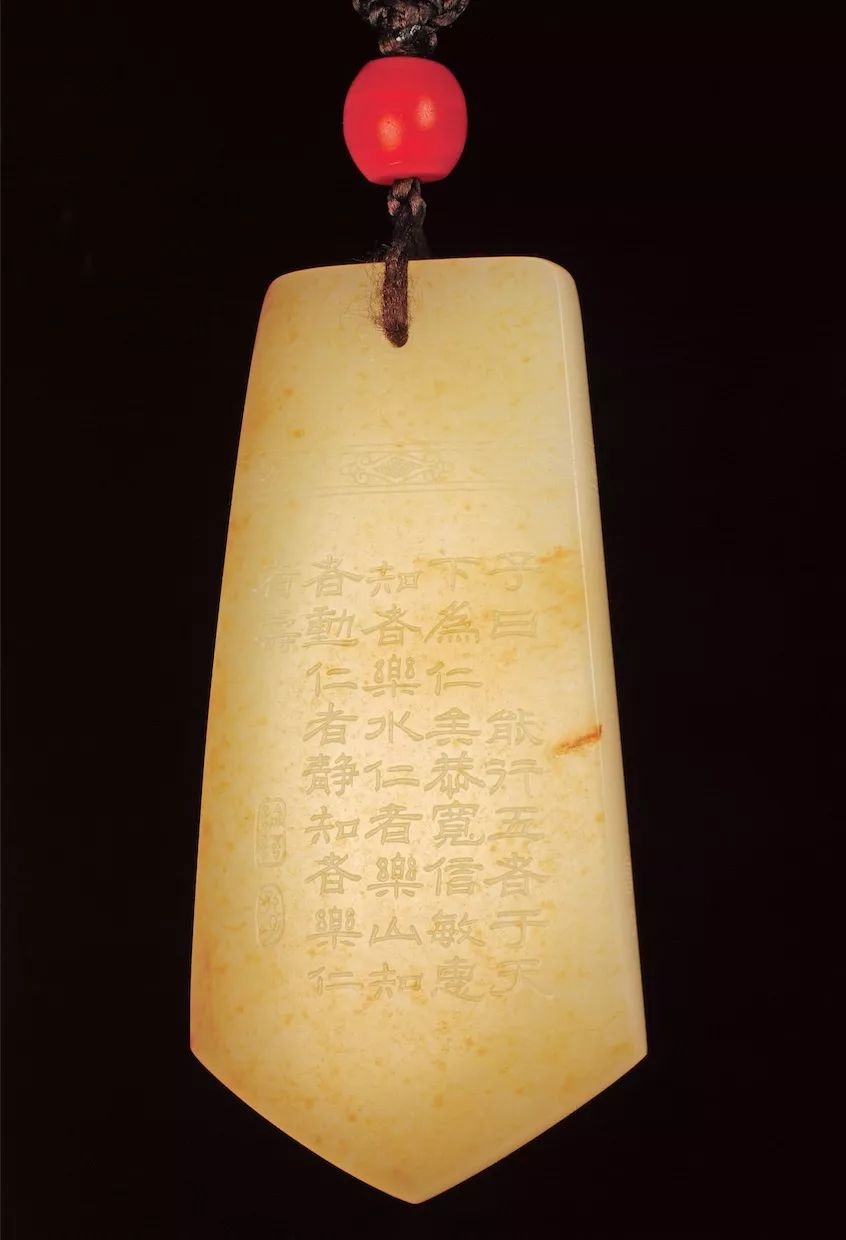 子曰 能行五者于天
下為仁矣恭寬信敏惠
知者樂水仁者樂山知
者動仁者靜知者樂仁
者壽